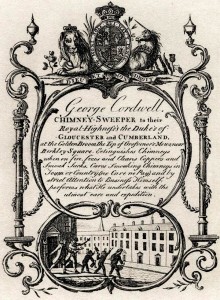 George Cordwell,
CHIMNEY-SWEEPER to their
Royal Highness's the Duke's of
GLOUCESTER and CUMBERLAND,
at the Golden Broom the Top of Grosvenor Mews near
Berkley-Square. Extinguishes Chimneys
when on fire, fixes and Cleans Coppers and
Smoak Jacks, Cures Smoaking Chimneys in
Town or Country (no Cure no Pay) and by
strict Attention to Business Himself,
performs what He undertakes with the
utmost care and expedition.